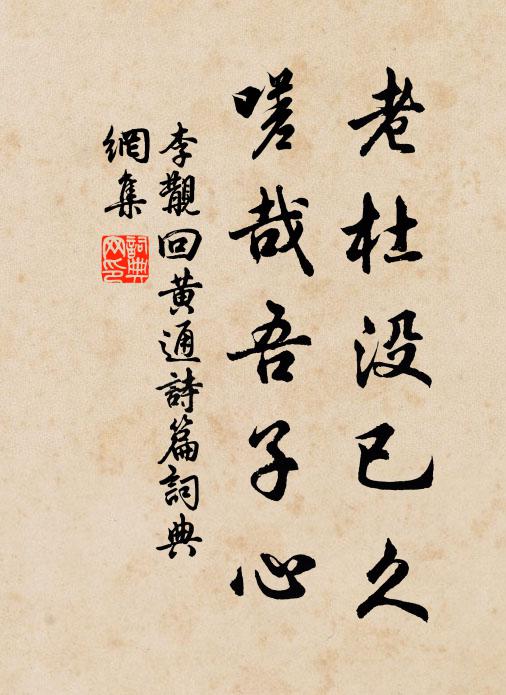 老杜没已久
嗟哉吾子心
李覯回黄通詩篇詞典
網集
詞典
网印